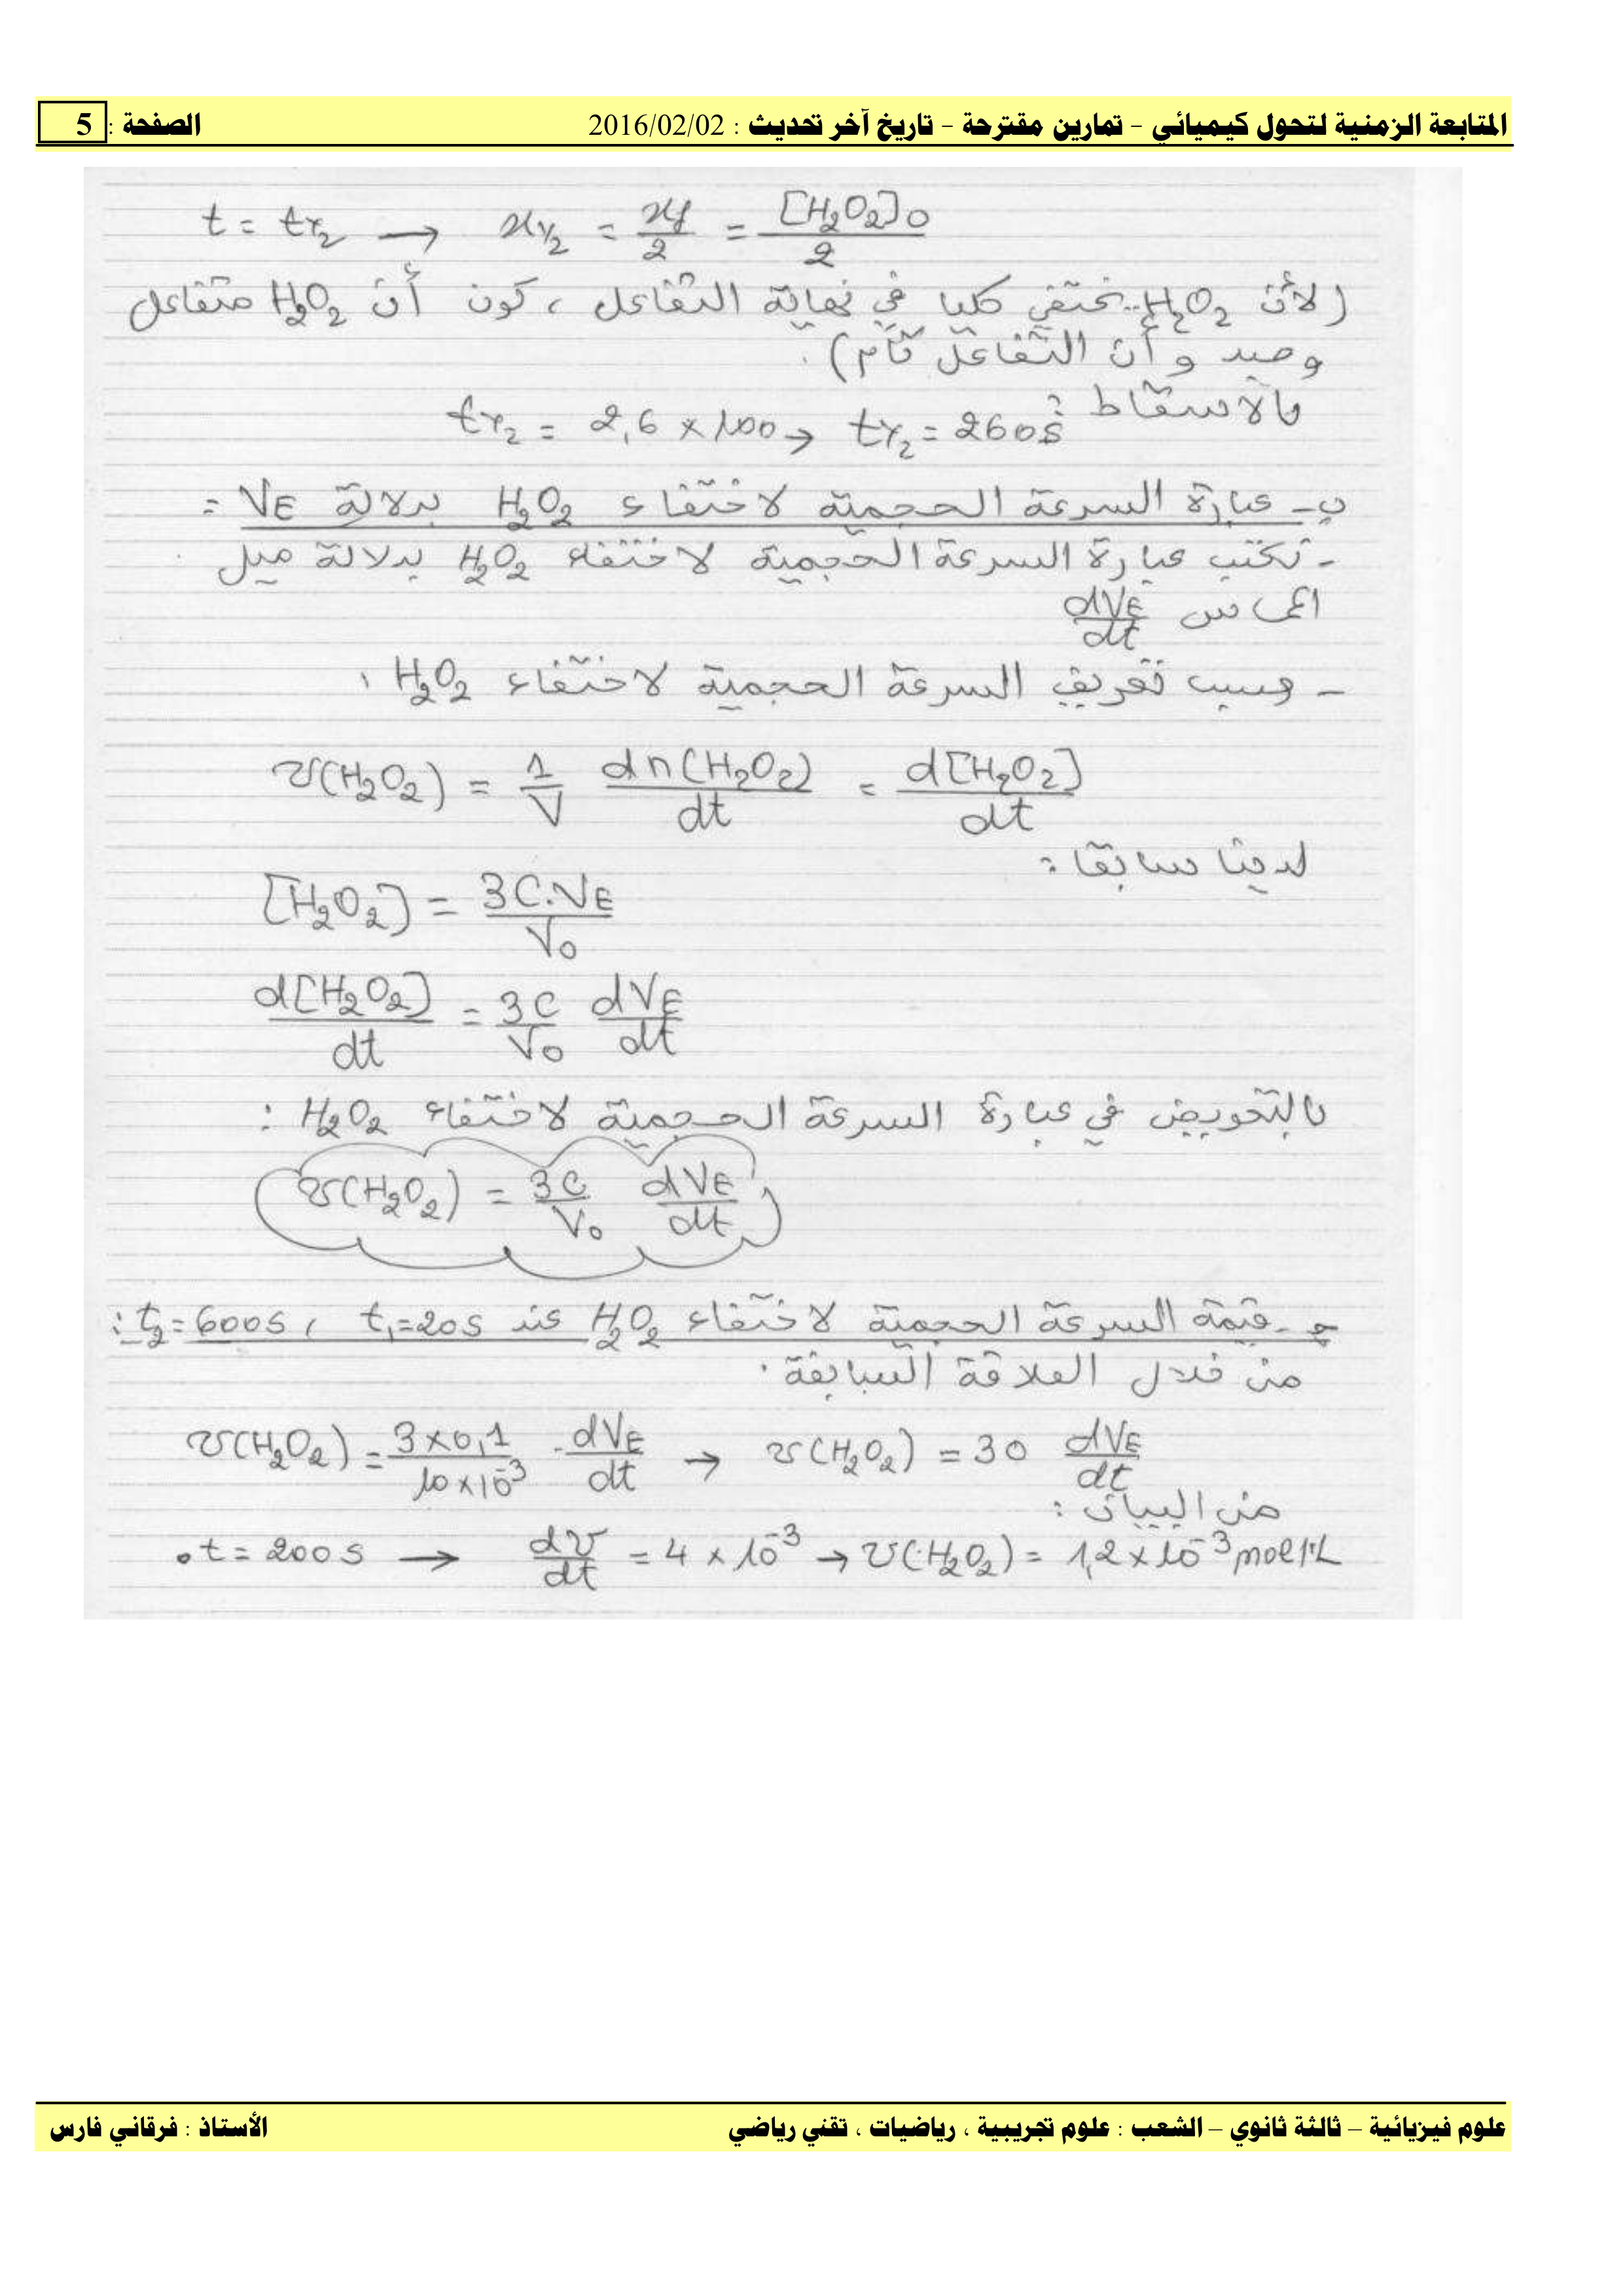 المتابعة الزمنية لتحول كيميائي – تمارين مقترحة – تاريخ آخر تحديث : 2016/02/02 الصفحة : 5
t = t1/2 → x1/2 = xf/2 = [H2O2]0/2
(لأن H2O2 يختفي كليا في نهاية التفاعل ، كون أن H2O2 متفاعل
وحيد و أن التفاعل تام) .
بالاسقاط : t1/2 = 2,6 × 100 → t1/2 = 260s
ب- عبارة السرعة الحجمية لاختفاء H2O2 بدلالة VE :
- نكتب عبارة السرعة الحجمية لاختفاء H2O2 بدلالة ميل
المماس dVE/dt
- حسب تعريف السرعة الحجمية لاختفاء H2O2 :
v(H2O2) = 1/V dn(H2O2)/dt = d[H2O2]/dt
لدينا سابقا :
[H2O2] = 3C.VE/V0
d[H2O2]/dt = 3C/V0 dVE/dt
بالتعويض في عبارة السرعة الحجمية لاختفاء H2O2 :
v(H2O2) = 3C/V0 dVE/dt
ج- قيمة السرعة الحجمية لاختفاء H2O2 عند t1=20s ، t2=600s :
من خلال العلاقة السابقة :
v(H2O2) = 3×0,1/10×10^-3 . dVE/dt → v(H2O2) = 30 dVE/dt
من البيان :
• t = 200s → dv/dt = 4 × 10^-3 → v(H2O2) = 1,2 × 10^-3 mol/L
علوم فيزيائية – ثالثة ثانوي – الشعب : علوم تجريبية ، رياضيات ، تقني رياضي الأستاذ : فرقاني فارس